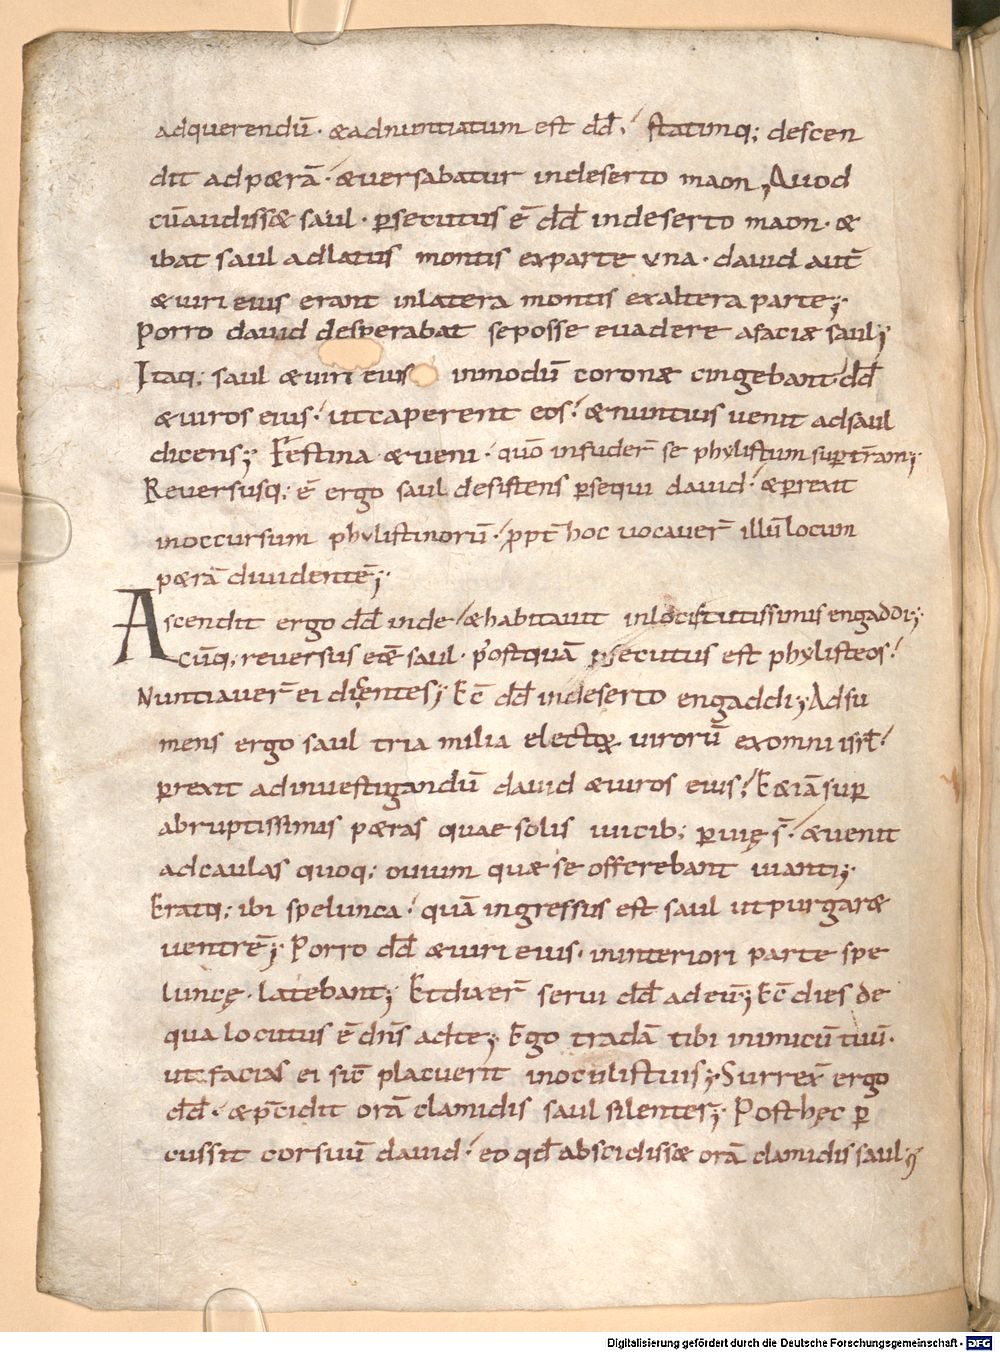 adquerendū· &adnuntiatum est dd̄· statimq; descen
dit adp&rā· &versabatur indeserto maon, Quod
cū audiss& saul· p̱secutus ē dd̄ indeserto maon· &
ibat saul adlatus montis exparte una· dauid aut̄
&uiri eius erant inlatera montis exaltera parte;
Porro dauid desperabat seposse euadere afaciæ saul;
Itaq; saul &uiri eius inmodū coronæ cingebant· dd̄
&uiros eius· utcaperent eos· &nuntius uenit adsaul
dicens; Festina &veni· quō infuder̄ se phylistum sup̱ t̄ram;
Reversusq; ē ergo saul desistens p̱sequi dauid· &p̱rexit
inoccursum phylistinorū· ꝓpt̄ hoc uocauer̄ illū locum
p&rā diuidentē;
Ascendit ergo dd̄ inde &habitauit inlocis tutissimis engaddi;
Cūq; reversus e&̄ saul· postquā p̱secutus est phylisteos·
Nuntiauer̄ ei dicentes; Ec̄ dd̄ indeserto engaddi; Adsu
mens ergo saul tria milia electoꝝ uirorū exomni isrl̄·
p̱rexit adinuestigandū dauid &uiros eius; E&iā sup̱
abruptissimis p&ras quae solis iuicib; p̱uię s̄· &uenit
adcaulas quoq; ouium quæ se offerebant uianti;
Eratq; ibi spelunca· quā ingressus est saul utpurgar&
uentrē; Porro dd̄ &uiri eius· ininteriori parte spe
luncę· latebant; Etdixer̄ serui dd̄ adeū; Ec̄ dies de
qua locutus ē dn̄s adte; Ego tradā tibi inimicū tuū·
utfacias ei sic̄ placuerit inoculistuis; Surrex̄ ergo
dd̄· &p̄cidit orā clamidis saul silenter; Posthęc p̱
cussit corsuū dauid· eo qd̄ absciss& orā clamidis saul;
Digitalisierung gefördert durch die Deutsche Forschungsgemeinschaft - DFG